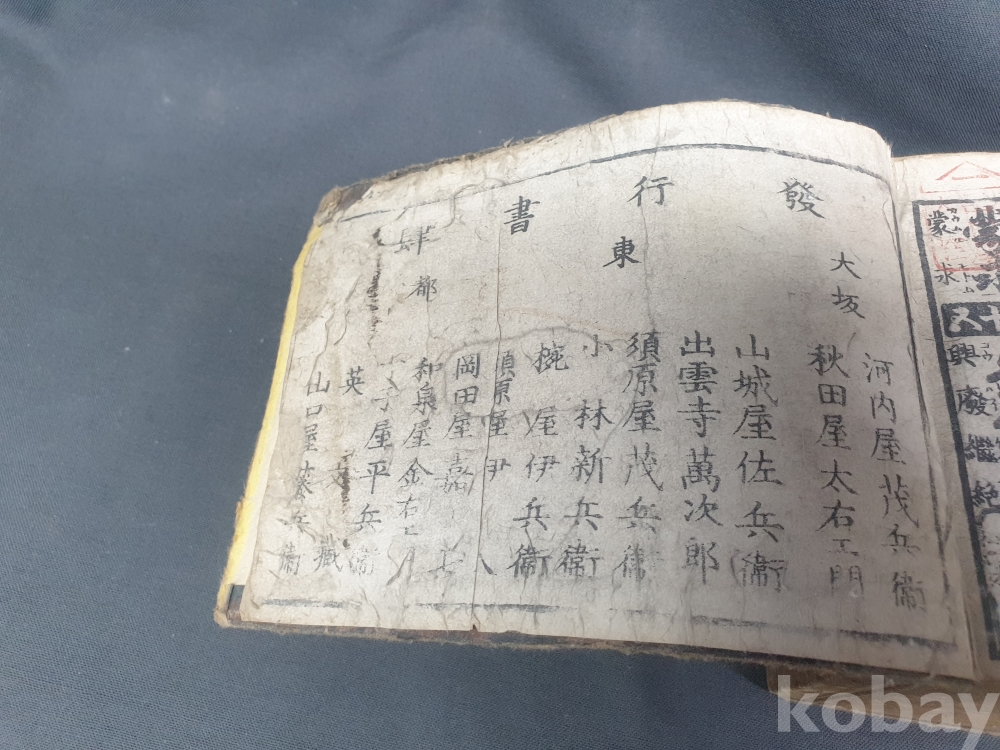 發行書肆
大坂
河内屋茂兵衛
秋田屋太右エ門
東都
山城屋佐兵衛
出雲寺萬次郎
須原屋茂兵衛
小林新兵衛
椀屋伊兵衛
須原屋伊八
岡田屋嘉七
和泉屋金右エ門
子屋平兵衛
英文藏
山口屋藤兵衛
蒙求
興廢繼絶
kobay